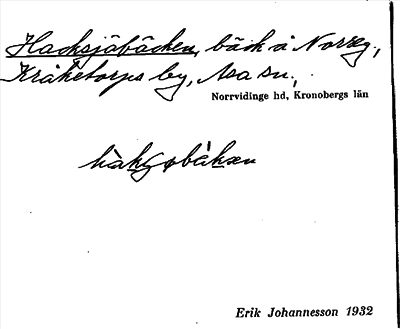 Hacksjöbäcken, bäck å Norreg.,
Kråketorps by, Asa sn,
Norrvidinge hd, Kronobergs län
Erik Johannesson 1932